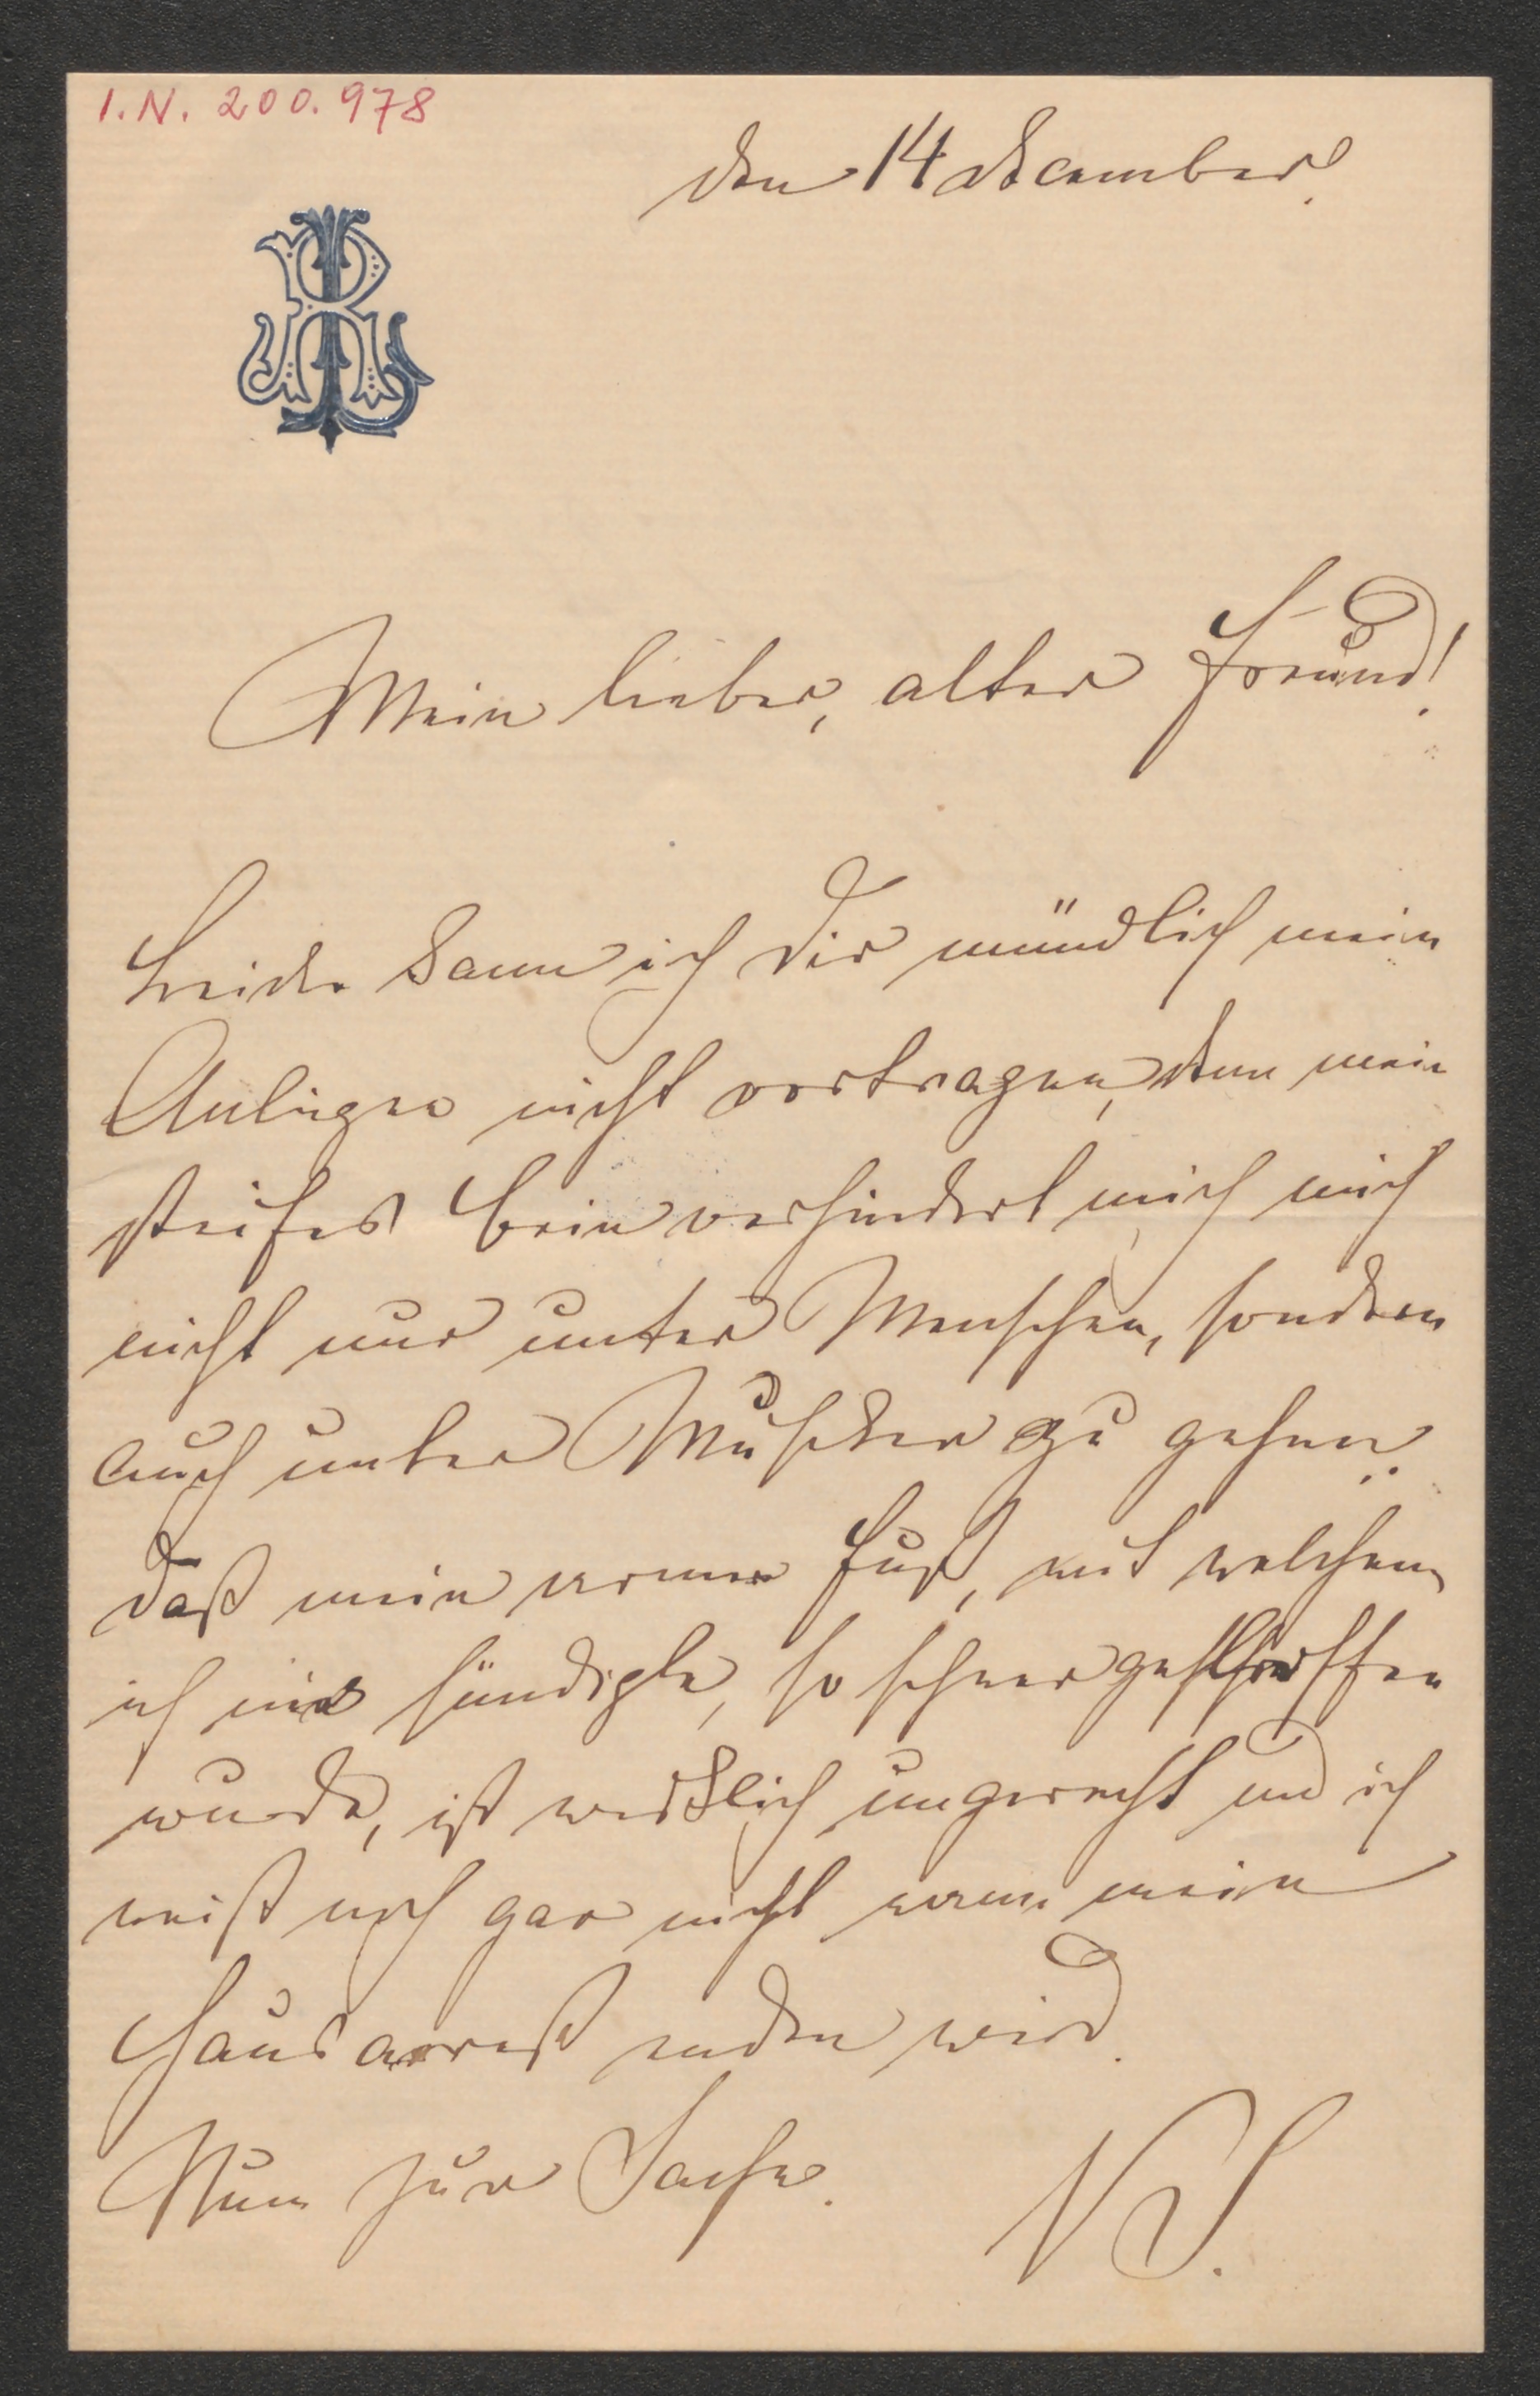 I.N. 200.978
den 14 December.
Mein lieber, alter Freund!
Leider kann ich Dir mündlich mein
Anliegen nicht vortragen, denn mein
steifes Bein verhindert mich mich
nicht nur unter Menschen, sondern
auch unter Musiker zu gehen.
Daß mein armer Fuß, mit welchem
ich nie sündigte, so schwer
wurde, ist wirklich ungerecht und ich
weiß noch gar nicht wann mein
Hausarrest enden wird.
Nun zur Sache.